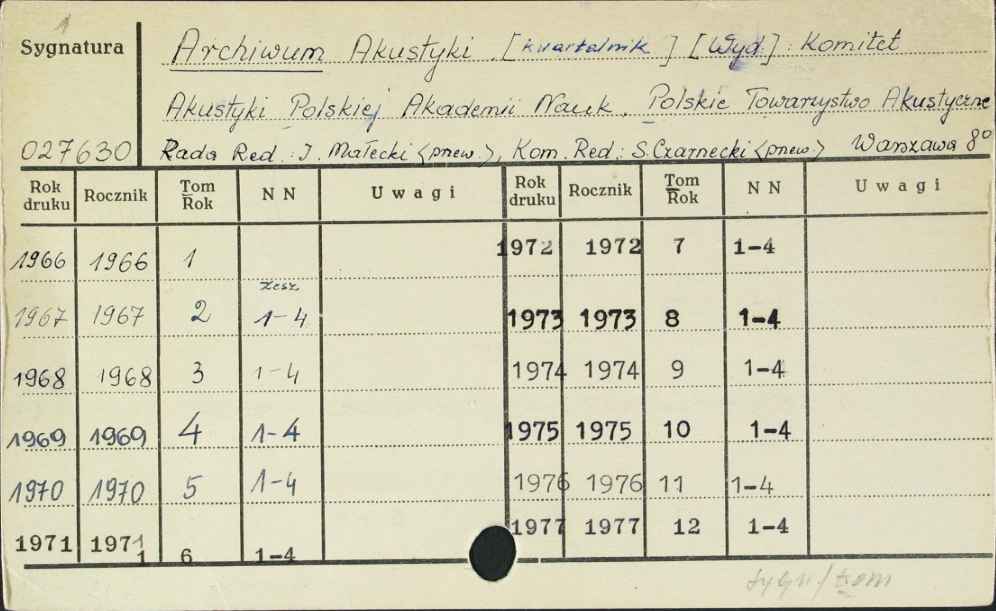 1
Sygnatura
Archiwum Akustyki. [kwartalnik] [Wyd]: Komitet
Akustyki Polskiej Akademii Nauk. Polskie Towarzystwo Akustyczne
027630 Rada Red.: I. Małecki (pnew.), Kom. Red.: S. Czarnecki (pnew) Warszawa 8°
Rok druku Rocznik Tom Rok N N Uwagi Rok druku Rocznik Tom Rok N N Uwagi
1966 1966 1 1972 1972 7 1-4
zesz.
1967 1967 2 1-4 1973 1973 8 1-4
1968 1968 3 1-4 1974 1974 9 1-4
1969 1969 4 1-4 1975 1975 10 1-4
1970 1970 5 1-4 1976 1976 11 1-4
1971 1971 6 1-4 1977 1977 12 1-4
sygn/tom